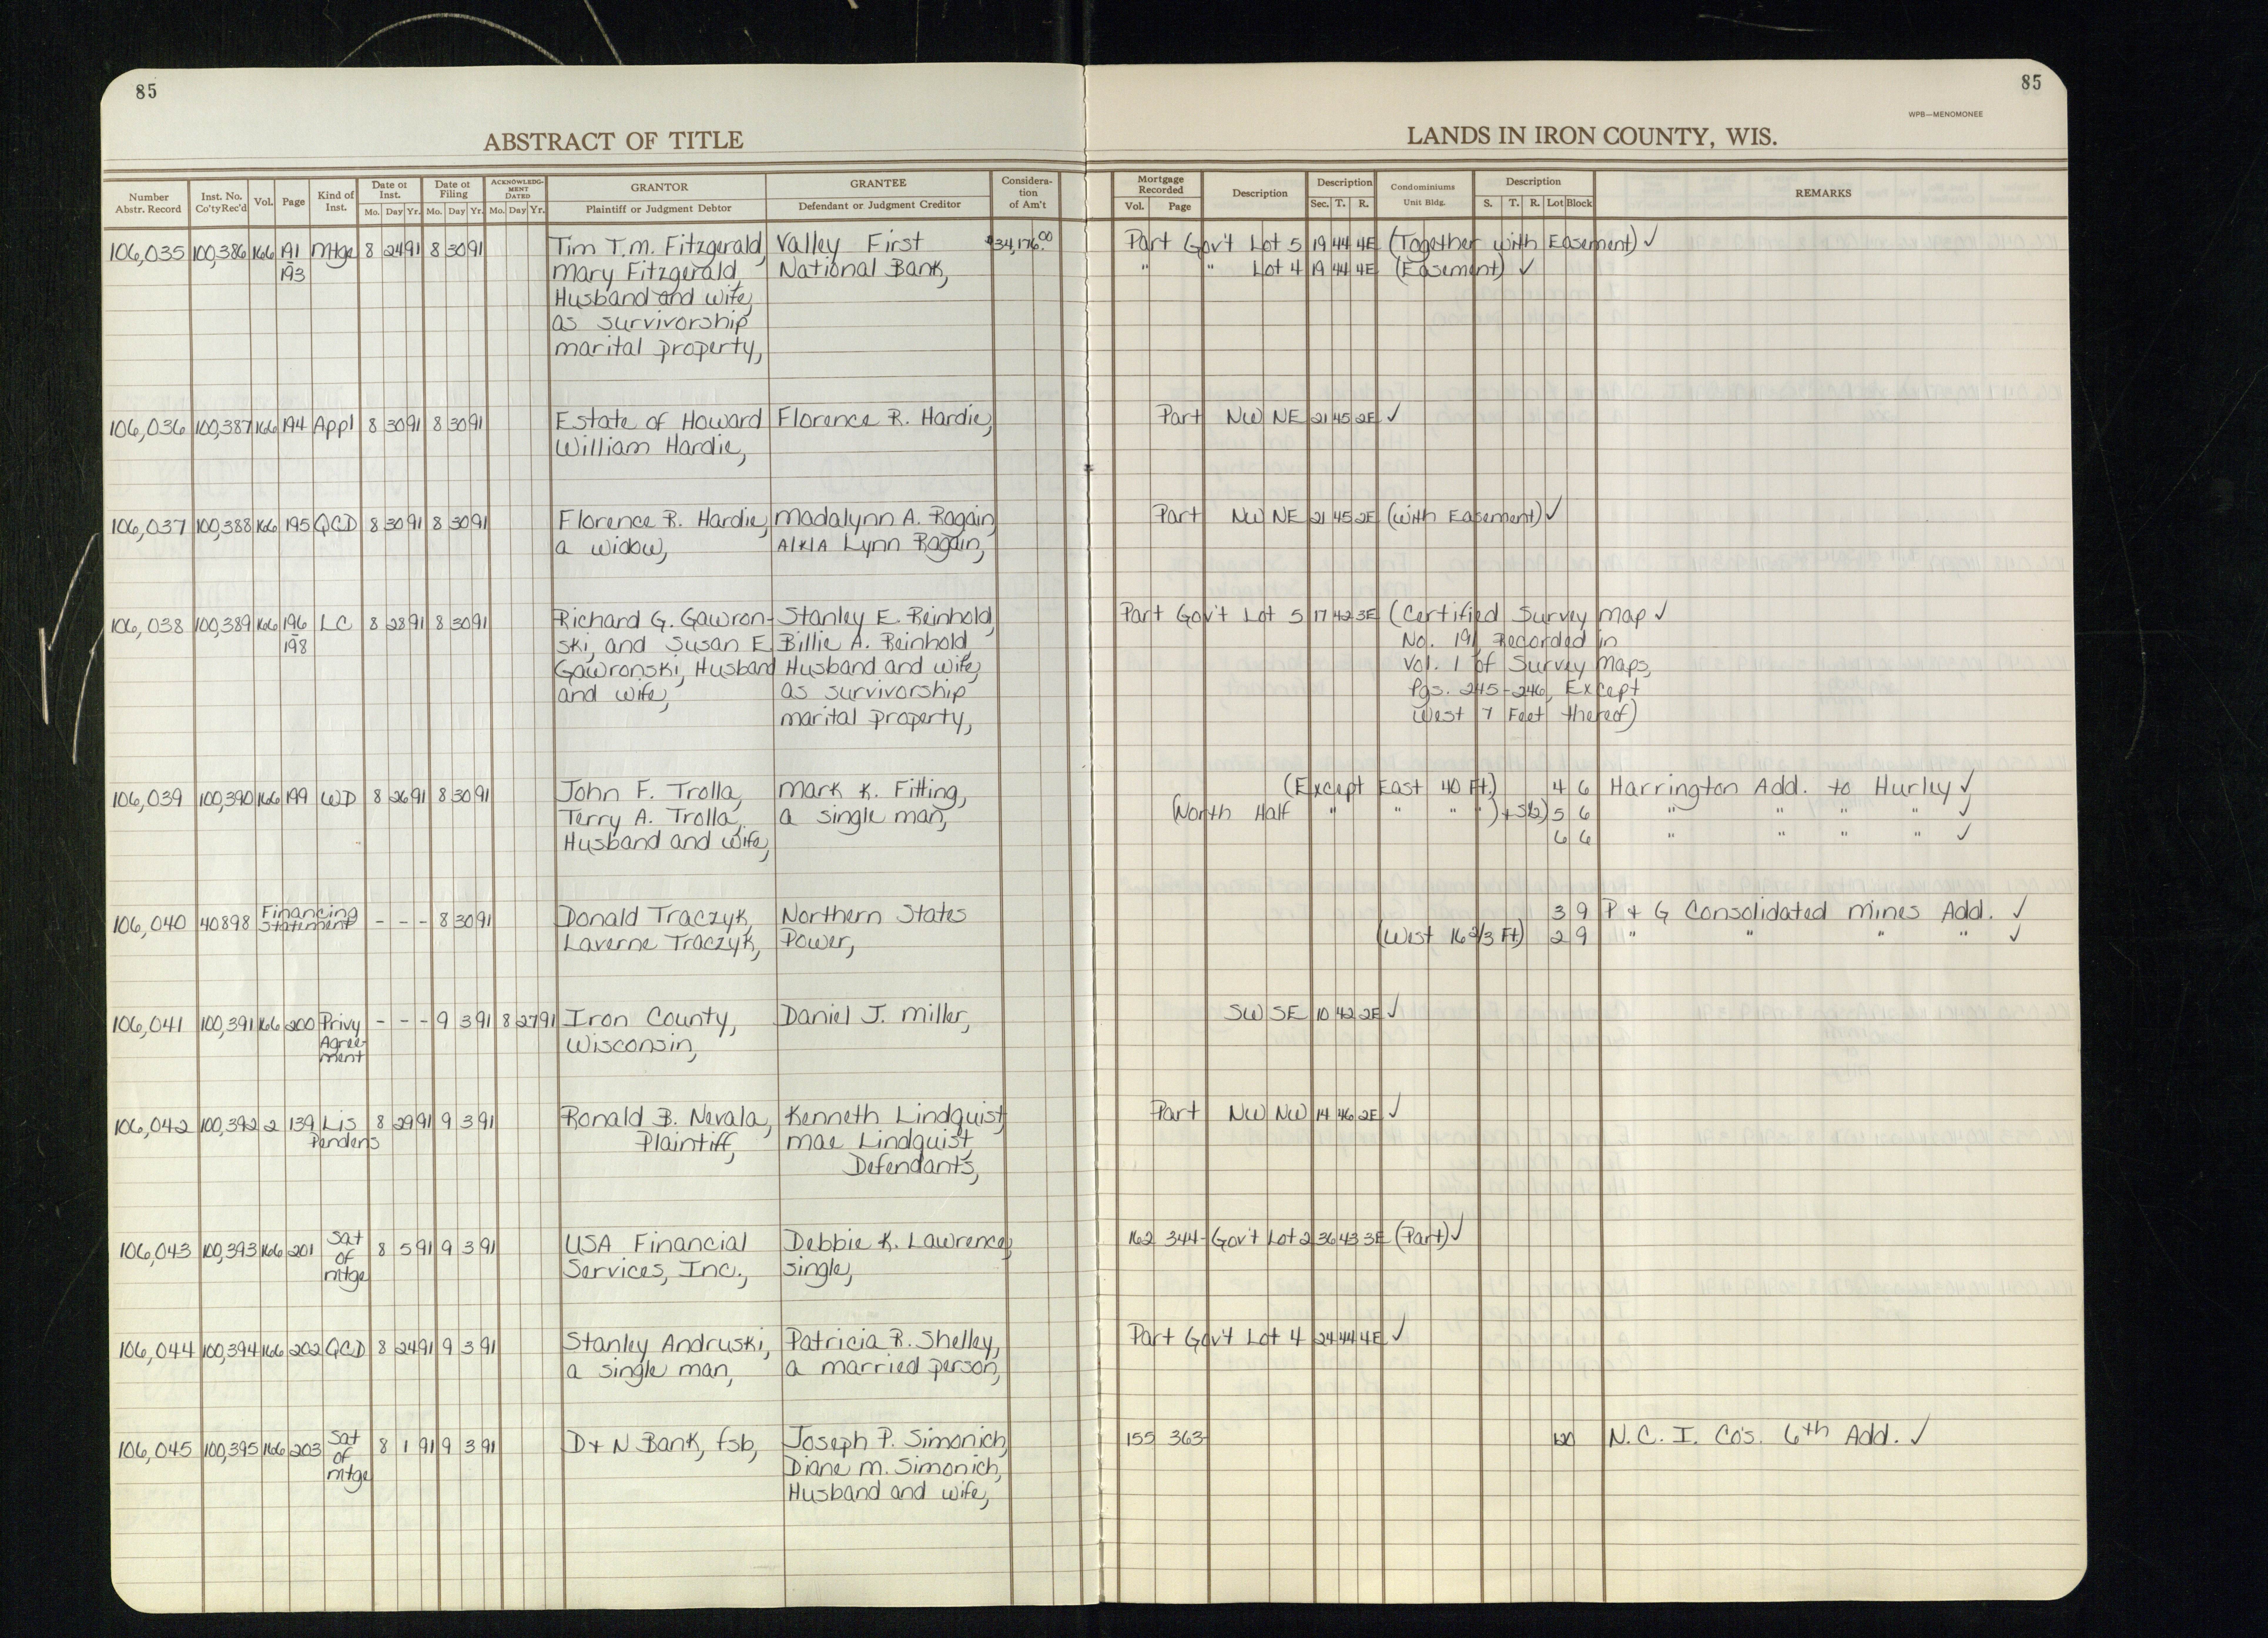 85
85
WPB—MENOMONEE
ABSTRACT OF TITLE
LANDS IN IRON COUNTY, WIS.
Number Abstr. Record | Inst. No. Co'ty Rec'd | Vol. | Page | Kind of Inst. | Date of Inst. Mo. Day Yr. | Date of Filing Mo. Day Yr. | ACKNOWLEDGMENT DATED Mo. Day Yr. | GRANTOR Plaintiff or Judgment Debtor | GRANTEE Defendant or Judgment Creditor | Consideration of Am't | Mortgage Recorded Vol. Page | Description | Description Sec. T. R. | Condominiums Unit Bldg. | Description S. T. R. Lot Block | REMARKS
106,035 100,386 166 191 Mtge 8 24 91 8 30 91 Tim T.M. Fitzgerald, Valley First $34,176.00 Part Gov't Lot 5 19 44 4E (Together with Easement) ✓
193 Mary Fitzgerald, National Bank, " " Lot 4 19 44 4E (Easement) ✓
Husband and wife,
as survivorship
marital property,
106,036 100,387 166 194 Appl 8 30 91 8 30 91 Estate of Howard Florence R. Hardie, Part NW NE 21 45 2E ✓
William Hardie,
106,037 100,388 166 195 QCD 8 30 91 8 30 91 Florence R. Hardie, Madalynn A. Ragain, Part NW NE 21 45 2E (with Easement) ✓
a widow, A/K/A Lynn Ragain,
106,038 100,389 166 196 LC 8 28 91 8 30 91 Richard G. Gawron- Stanley E. Reinhold, Part Gov't Lot 5 17 42 3E (Certified Survey Map ✓
198 ski, and Susan E. Billie A. Reinhold, No. 191 Recorded in
Gawronski, Husband Husband and wife, Vol. 1 of Survey Maps,
and wife, as survivorship Pgs. 245-246, Except
marital property, West 7 Feet thereof)
106,039 100,390 166 199 WD 8 26 91 8 30 91 John F. Trolla, Mark K. Fitting, (Except East 40 Ft.) 4 6 Harrington Add. to Hurley ✓
Terry A. Trolla, a single man, (North Half " " " ") + S½) 5 6 " " " " ✓
Husband and wife, 6 6 " " " " ✓
106,040 40898 Financing Statement - - - 8 30 91 Donald Traczyk, Northern States 3 9 P + G Consolidated Mines Add. ✓
Laverne Traczyk, Power, (West 16 2/3 Ft) 2 9 " " " " ✓
106,041 100,391 166 200 Privy - - - 9 3 91 8 27 91 Iron County, Daniel J. Miller, SW SE 10 42 2E ✓
Agree- Wisconsin,
ment
106,042 100,392 2 139 Lis 8 29 91 9 3 91 Ronald B. Nevala, Kenneth Lindquist, Part NW NW 14 46 2E ✓
Pendens Plaintiff, Mae Lindquist,
Defendants,
106,043 100,393 166 201 Sat 8 5 91 9 3 91 USA Financial Debbie K. Lawrence, 162 344 Gov't Lot 2 36 43 3E (Part) ✓
of Services, Inc., single,
mtge
106,044 100,394 166 202 QCD 8 24 91 9 3 91 Stanley Andruski, Patricia R. Shelley, Part Gov't Lot 4 24 44 4E ✓
a single man, a married person,
106,045 100,395 166 203 Sat 8 1 91 9 3 91 D + N Bank, fsb, Joseph P. Simonich, 155 363 N.C.I. Co's. 6th Add. ✓
of Diane M. Simonich,
mtge Husband and wife,